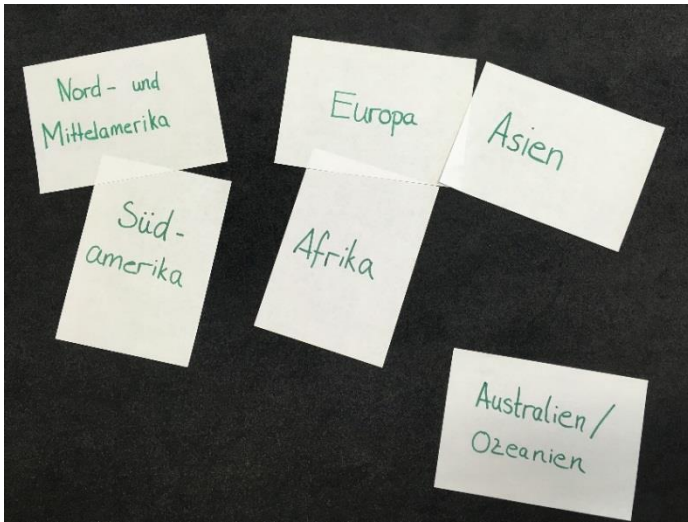 Nord- und
Mittelamerika
Europa
Asien
Süd-
amerika
Afrika
Australien/
Ozeanien